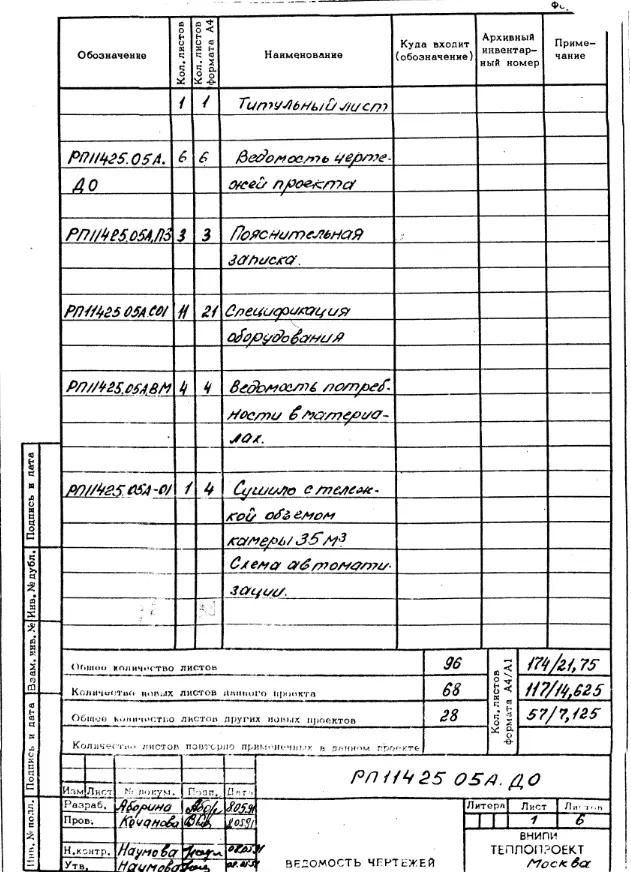 Обозначение Кол. листов Кол. листов формата А4 Наименование Куда входит (обозначение) Архивный инвентарный номер Примечание
1 1 Титульный лист
РП11425.05А. 6 6 Ведомость черте-
ДО жей проекта
РП11425.05А.ПЗ 3 3 Пояснительная
записка.
РП11425 05А.СО1 11 21 Спецификация
оборудования
РП11425.05А.ВМ 4 4 Ведомость потреб-
ности в материа-
лах.
РП11425.05А-01 1 4 Сушило с тележ-
кой объемом
камеры 35 м3
Схема автомати-
зации.
Общее количество листов 96 Кол. листов формата А4/А1 174/21,75
Количество новых листов данного проекта 68 117/14,625
Общее количество листов других новых проектов 28 57/7,125
Количество листов повторно примененных в данном проекте
Подпись и дата
Инв. № дубл.
Взам. инв. №
Подпись и дата
Инв. № подл.
РП11425 05А.ДО
Изм Лист № докум. Подп. Дата
Разраб. Аборина
Пров. Кочанова
Н.контр. Наумова
Утв. Наумова
ВЕДОМОСТЬ ЧЕРТЕЖЕЙ
Литера Лист Листов
1 6
ВНИПИ
ТЕПЛОПРОЕКТ
Москва